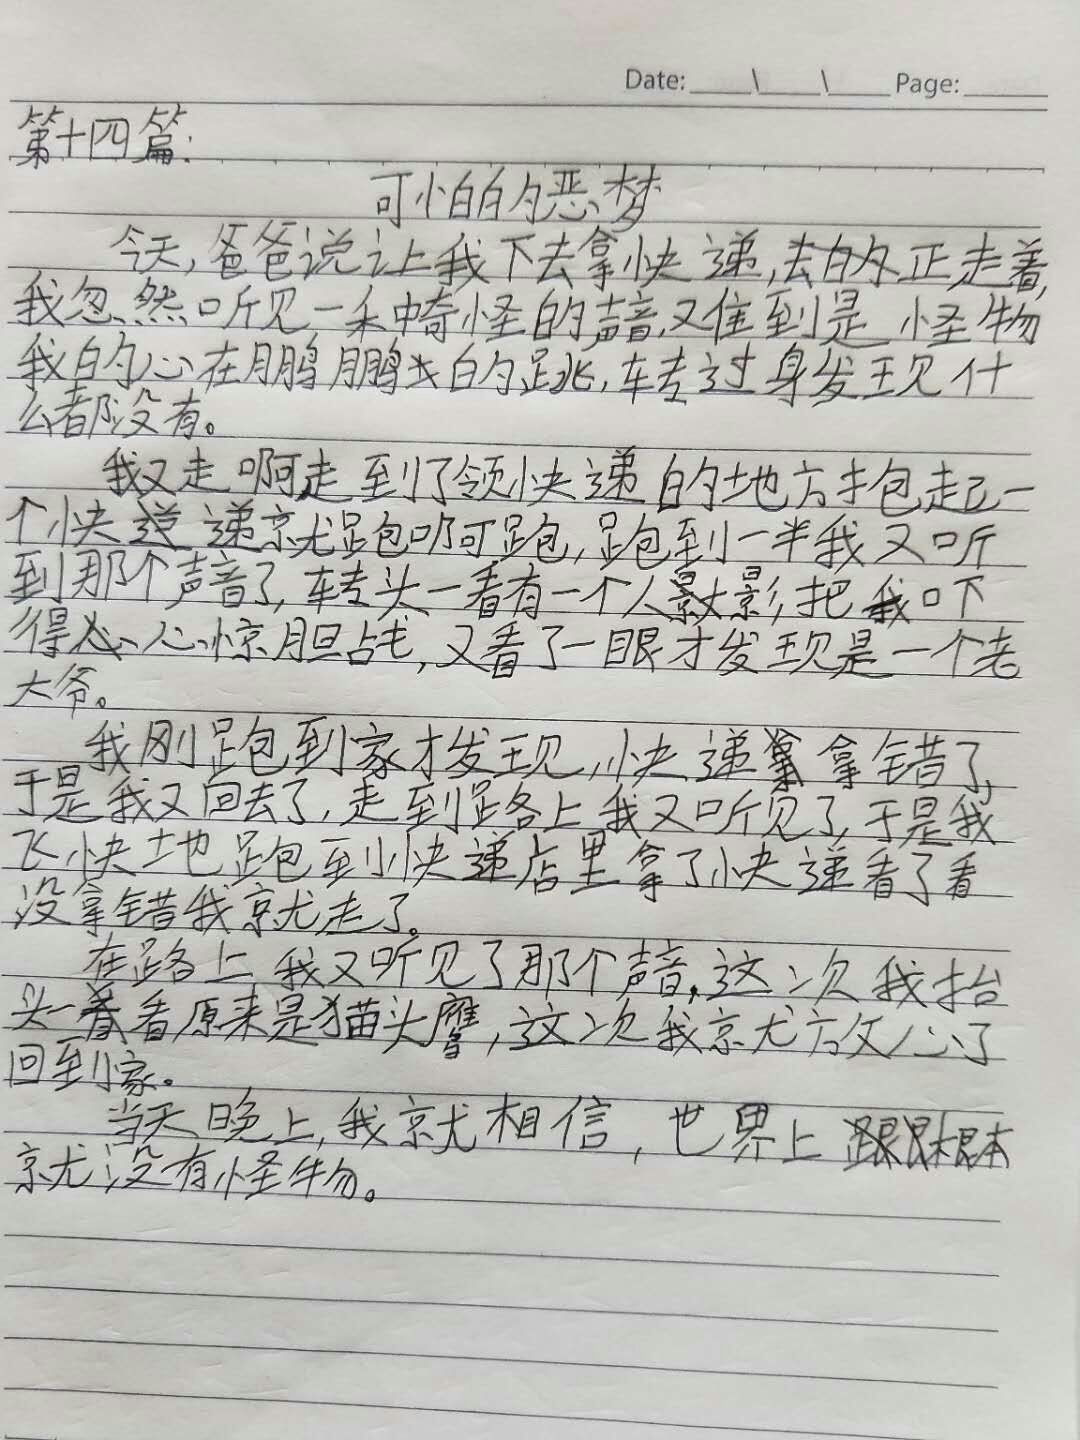 Date: ____\____\____ Page: ______
第十四篇:
可怕的恶梦
今天,爸爸说让我下去拿快递,去的正走着,
我忽然听见一种奇怪的声音,又住到是怪物
我的心在鹏鹏的跳,转过身发现什
么都没有。
我又走啊走到了领快递的地方抱起一
个快递就跑啊跑,跑到一半我又听
到那个声音了,转头一看有一个人影,把我吓
得心惊胆战,又看了一眼才发现是一个老
大爷。
我刚跑到家才发现,快递拿错了,
于是我又回去了,走到路上我又听见了,于是我
飞快地跑到快递店里拿了快递看了看
没拿错我就走了。
在路上我又听见了那个声音,这次我抬
头一看原来是猫头鹰,这次我就放心了
回到家。
当天晚上,我就相信,世界上根本
就没有怪物。